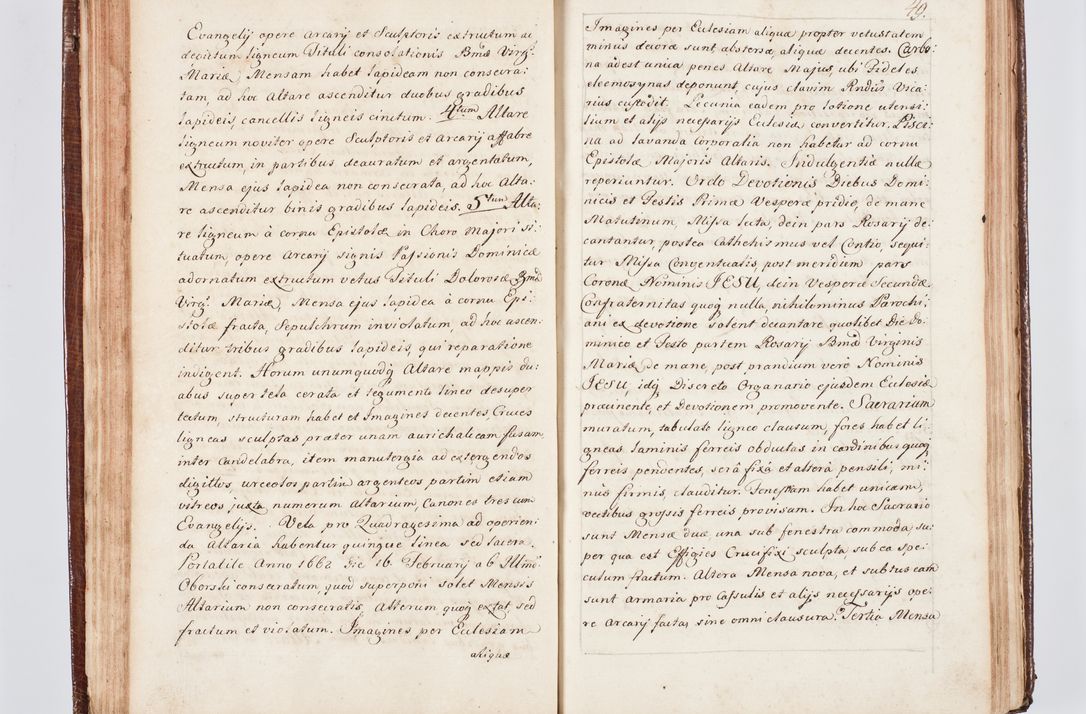 Evangelij opere Arcarij et Sculptoris extructum ac
decoitum ligneum Tituli consolationis Bmæ Virgs
Mariæ, Mensam habet lapideam non consecra-
tam, ad hoc Altare ascenditur duobus gradibus
lapideis, cancellis ligneis cinctum. 4tum Altare
ligneum noviter opere Sculptoris et Arcarij affabre
extructum, in partibus deauratum et argentatum,
Mensa ejus lapidea non consecrata, ad hoc Alta:
re ascenditur binis gradibus lapideis. 5tum Alta:
re ligneum à cornu Epistolæ in Choro Majori si:
tuatum, opere Arcarij signis Passionis Dominicæ
adornatum extructum vetus Tituli Dolorosæ Bmæ
Virgs Mariæ, Mensa ejus lapidea à cornu Epi:
stolæ fracta, Sepulchrum inviolatum, ad hoc ascen:
ditur tribus gradibus lapideis, qui reparatione
indigent. Horum unumquodq Altare mappis du:
abus super tela cerata et tegumento lineo desuper
tectum, structuram habet et Imagines decentes, Cruces
ligneas sculptas præter unam aurichalceam fusam
inter Candelabra, item manutergia ad extergendos
digittos, urceolos partim argenteos partim etiam
vitreos juxta numerum Altarium, Canones tres cum
Evangelijs. Vela pro Quadragesima ad operien:
da Altaria habentur quinque linea sed lacera.
Portatile Anno 1662 Die 16 Februarij ab Illmo
Oborski consecratum, quod superponi solet Mensis
Altarium non consecratis, Alterum quoq extat sed
fractum et violatum. Imagines per Eclesiam
aliquæ
49.
Imagines per Eclesiam aliquæ propter vetustatem
minus decoræ sunt abstersæ, aliquæ decentes. Carbo:
na adest unica penes Altare Majus, ubi Fideles
eleemosynas deponunt, cujus clavim Rndus Vica:
rius custodit. Pecunia eadem pro lotione utensi:
lium et alijs necessarijs Eclesiæ convertitur. Pisci:
na ad lavanda Corporalia non habetur ad cornu
Epistolæ Majoris Altaris. Indulgentiæ nullæ
reperiuntur. Ordo Devotionis Diebus Domi:
nicis et Festis Primæ Vesperæ pridie, de mane
Matutinum, Missa lecta, dein pars Rosarij de:
cantantur, postea Cathehismus vel Contio, sequi:
tur Missa Conventualis, post meridiem pars
Coronæ Nominis JESU, dein Vesperæ Secundæ.
Confraternitas quoq nulla, nihilominus Parochi:
ani ex devotione solent decantare quolibet Die Do:
minico et Festo partem Rosarij Bmæ Virginis
Mariæ de mane, post prandium verò Nominis
JESU, idq Discreto Organario ejusdem Eclesiæ
præcinente, et Devotionem promovente. Sacrarium
muratum, tabulato ligneo clausum, fores habet li:
gneas laminis ferreis obductas in cardinibus quoq
ferreis pendentes, serâ fixâ et alterâ pensili, mi:
nus firmis, clauditur. Fenestram habet unicam,
vectibus grossis ferreis provisam. In hoc Sacrario
sunt Mensæ duæ, una sub fenestra commoda su:
per qua est Effigies Crucifixi sculpta sub ea spe:
culum fractum. Altera Mensa nova, et subtus eam
sunt armaria pro Casulis et alijs necessarijs ope:
re Arcarij facta, sine omni clausura. Tertia Mensa